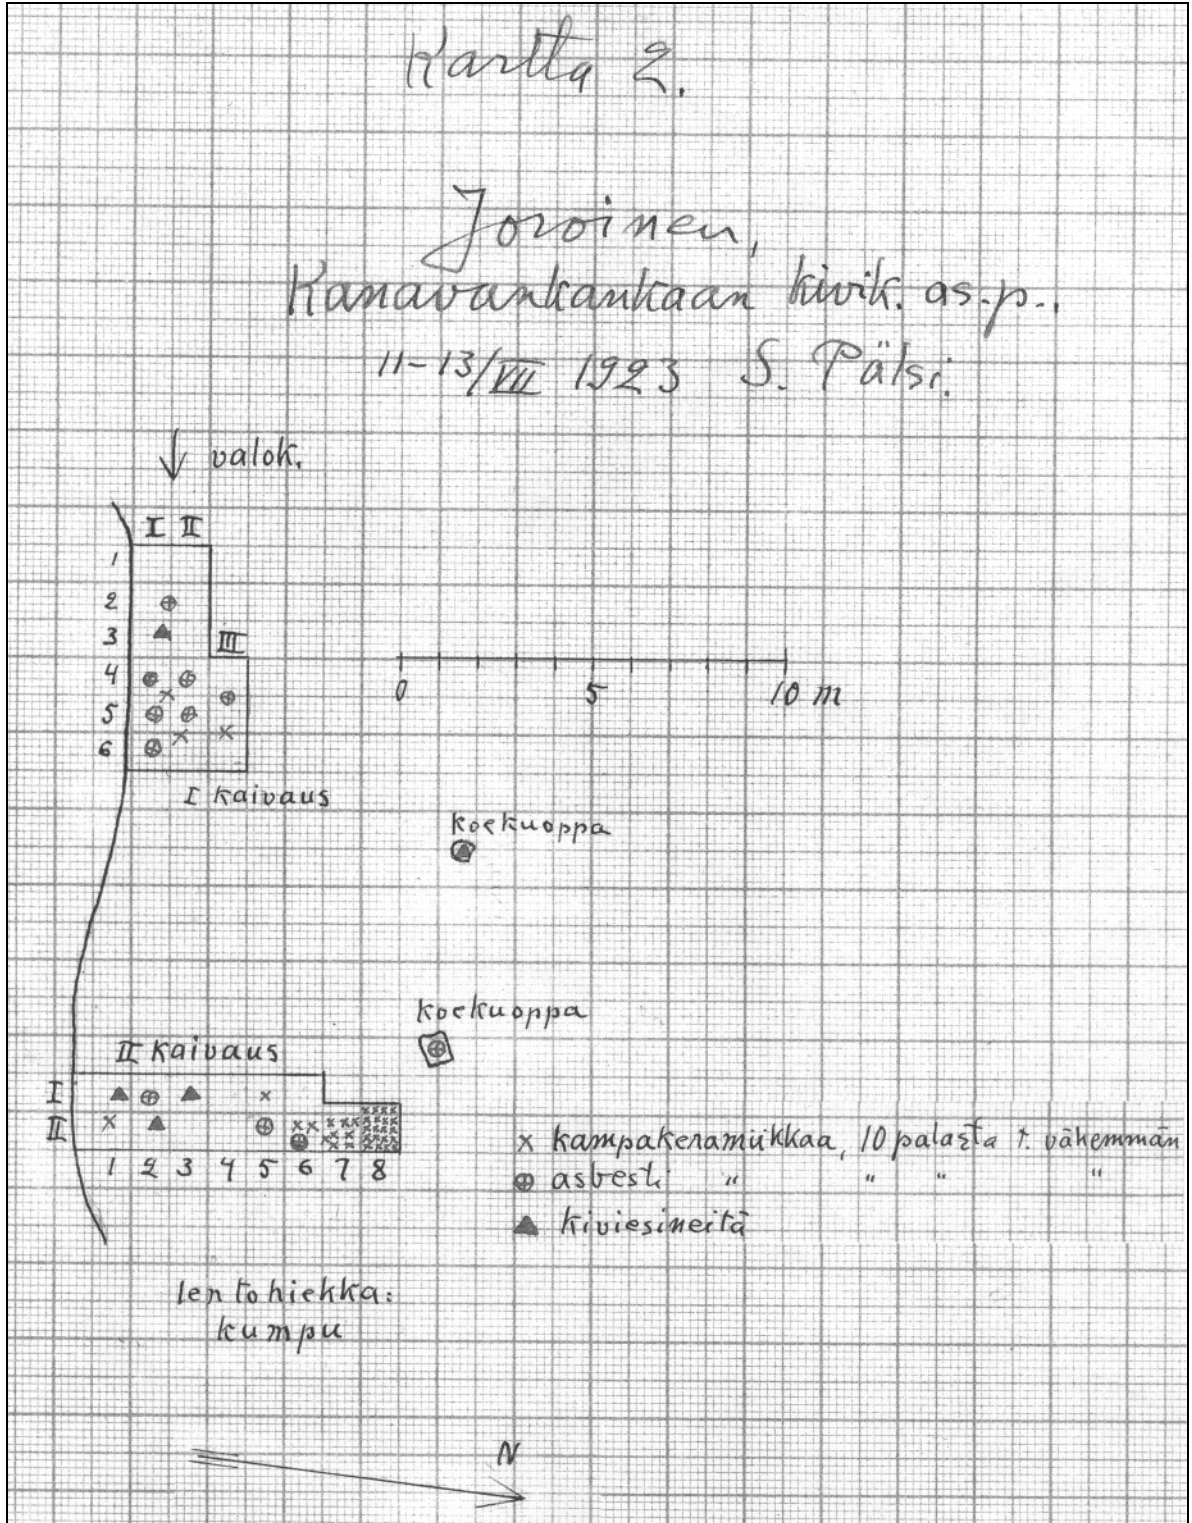 Kartta 2.
Joroinen,
Kanavankankaan kivik. as.p.,
11-13/VII 1923 S. Pälsi.
valok.
I II
1
2
3
III
4
5
6
I kaivaus
0 5 10 m
koekuoppa
koekuoppa
II kaivaus
I
II
1 2 3 4 5 6 7 8
x kampakeramiikkaa, 10 palasta t. vähemmän
asbesti " " " "
kiviesineitä
lentohiekka:
kumpu
N